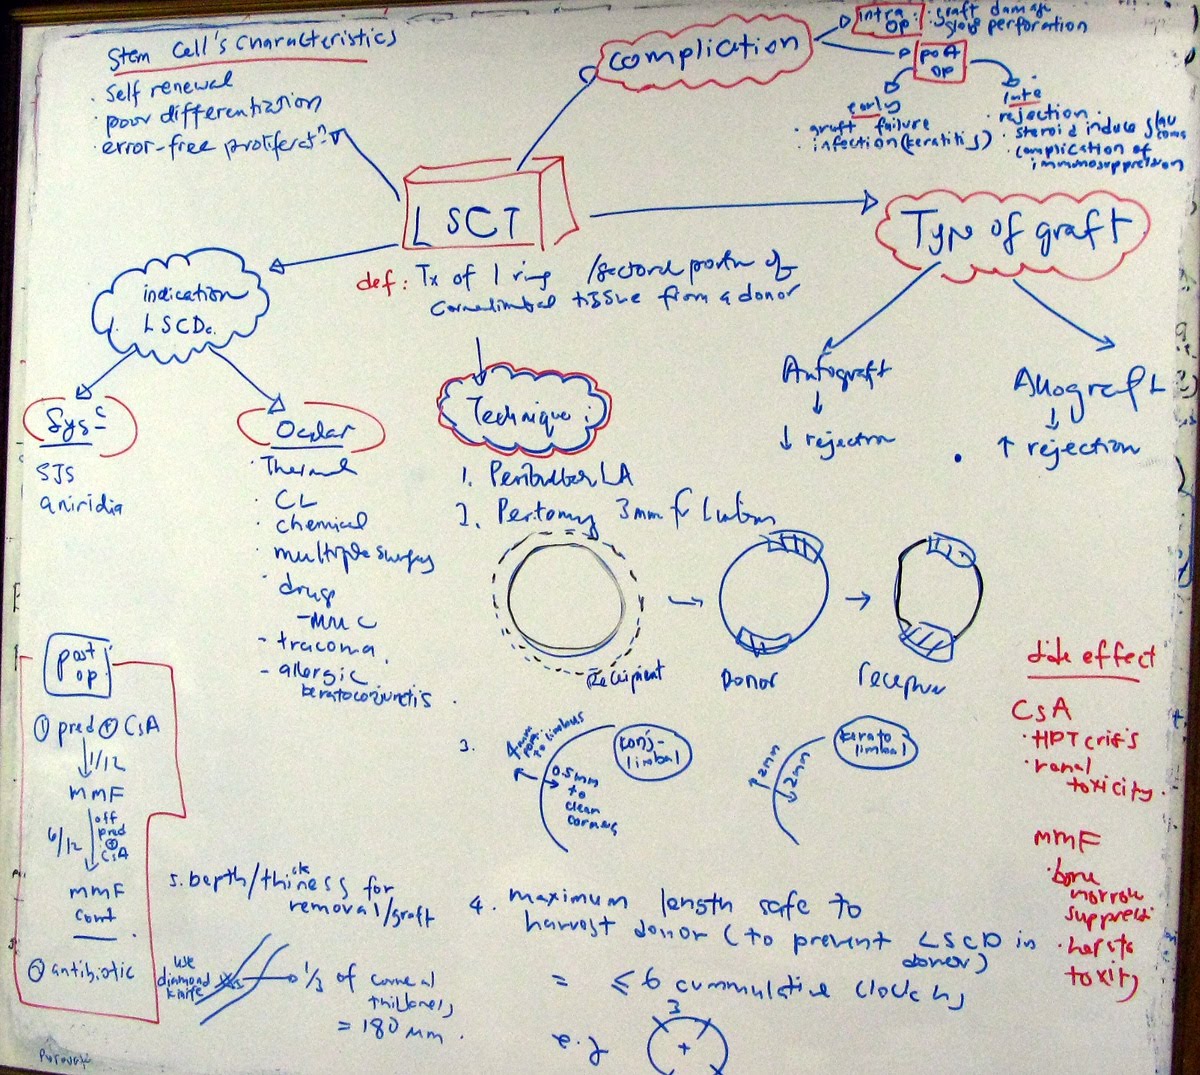 Stem Cell's Characteristics
· self renewal
· poor differentiation
· error-free proliferatn
complication
intra op :
· graft damage
globe perforation
post op
early
· graft failure
· infection (keratitis)
late
rejection ·
· steroid induce glaucoma
· complication of
immunosuppression
LSCT
def : Tx of 1 ring /sectoral portn of
corneolimbal tissue from a donor
Type of graft
Autograft
↓
↓ rejection
Allograft
↓
↑ rejection
indication
LSCD
Sysc
SJS
aniridia
Ocular
· Thermal
· CL
· chemical
· multiple surgery
· drugs
- MMC
- tracoma
- allergic
keratoconjunctis
Technique :
1. Peribulbar LA
2. Peritomy 3mm fr limbus
Recipient
Donor
3.
4mm
to limbus
0.5mm
to
clear
cornea
conj-
limbal
2mm
2mm
kerato
limbal
4. maximum length safe to
harvest donor (to prevent LSCD in
donor)
= ≤ 6 cummulative clock hr
e.g
3
+
5. depth/thickness for
removal/graft
use
diamond
knife
1/3 of corneal
thickness
= 180 µm.
post
op
① pred + CsA
↓ 1/12
MMF
6/12 ↓ off
pred
+
CsA
MMF
cont
② antibiotic
side effect
CsA
· HPT crisis
· renal
toxicity.
MMF
· bone
morrow
suppress
· hepato
toxity